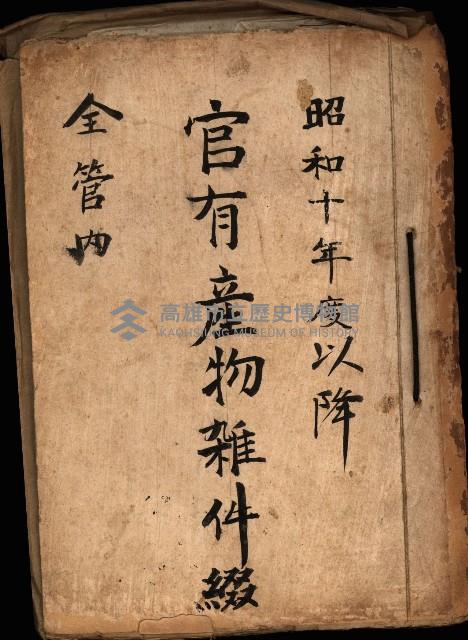 昭和十年度以降
官有産物雑件綴
全管内
高雄市立歷史博物館
KAOHSIUNG MUSEUM OF HISTORY